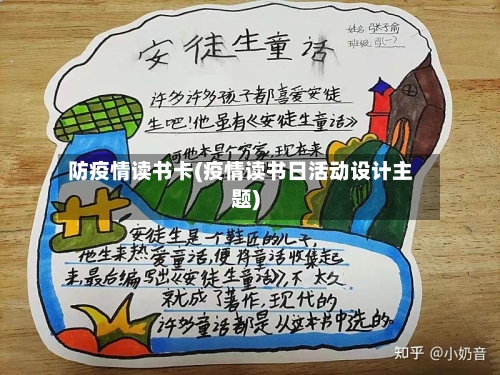 安徒生童话
姓名:
班级:
许多许多孩子都喜爱安徒
生吧!他虽有《安徒生童话》
何他本是个穷家,现在来
防疫情读书卡(疫情读书日活动设计主
题)
安徒生是一个鞋匠的儿子,
他生来热爱童话,便将童话收集起
来,最后编写出《安徒生童话》,不太久
就成了著作,现代的
许多童话都是从这本书中选的。
知乎 @小奶音